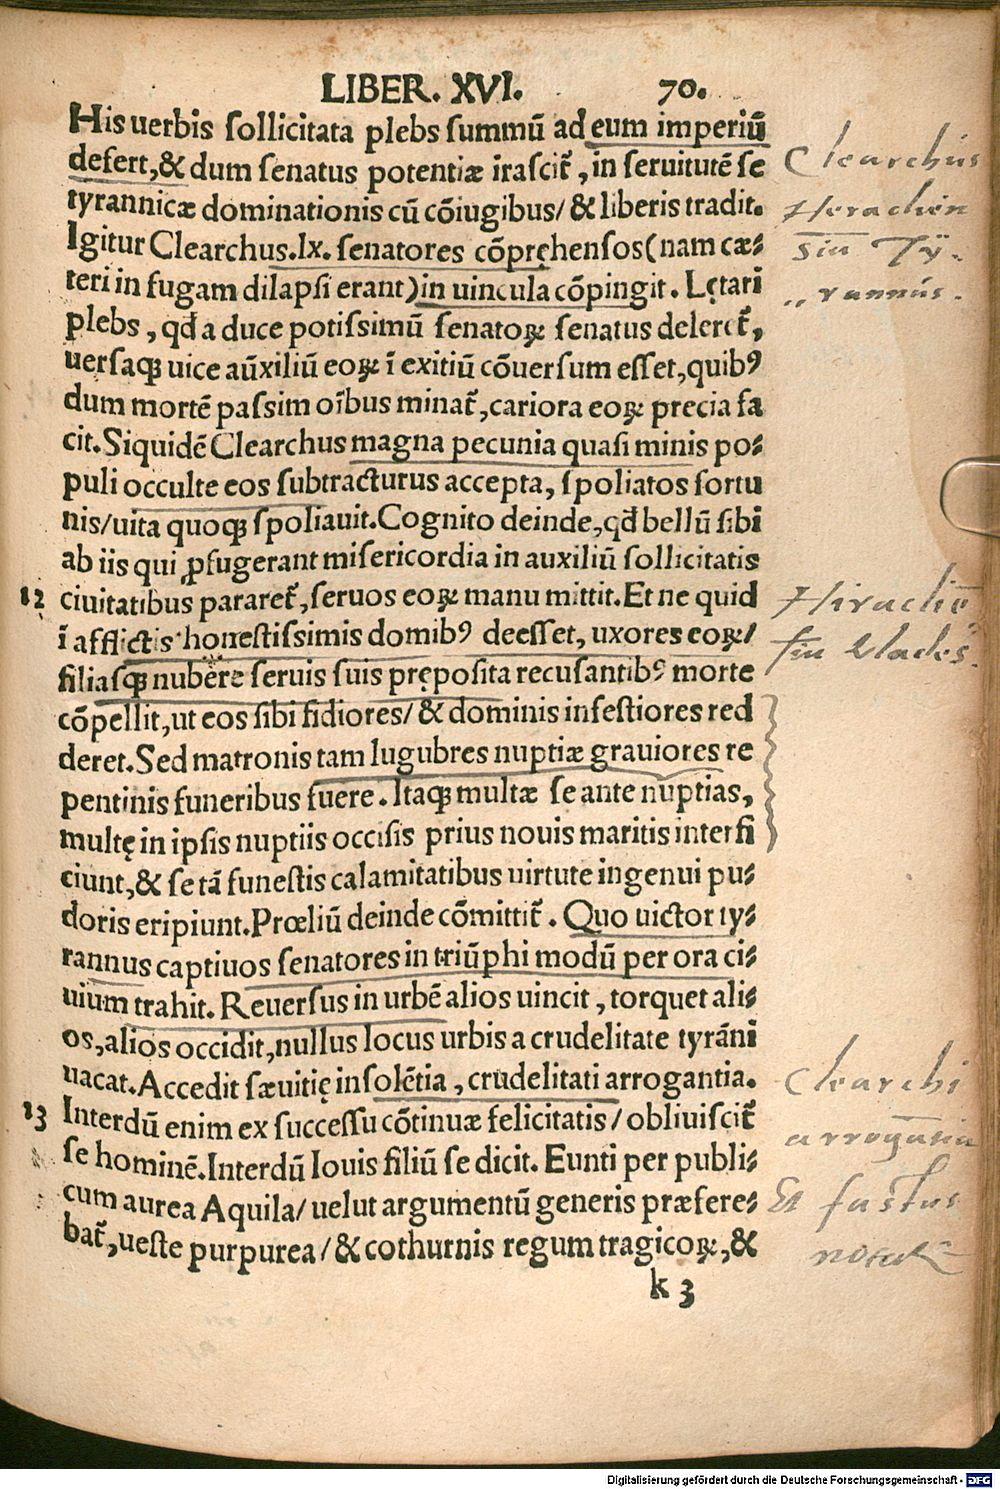 LIBER. XVI. 70.
His uerbis sollicitata plebs summũ ad eum imperiũ
defert,& dum senatus potentiæ irascit᷑, in seruitutẽ se
tyrannicæ dominationis cũ cõiugibus/ & liberis tradit.
Igitur Clearchus.lx. senatores cõpręhensos(nam cæ⸗
teri in fugam dilapsi erant)in uincula cõpingit. Lętari
plebs, qđ a duce potissimũ senatoꝝ senatus deleret᷑,
uersaqꝫ uice aũxiliũ eoꝝ ĩ exitiũ cõuersum esset,quibꝰ
dum mortẽ passim oĩbus minat᷑,cariora eoꝝ precia fa
cit.Siquidẽ Clearchus magna pecunia quasi minis po⸗
puli occulte eos subtracturus accepta, spoliatos fortu
nis/uita quoqꝫ spoliauit.Cognito deinde,qđ bellũ sibi
ab iis qui ꝓfugerant misericordia in auxiliũ sollicitatis
12 ciuitatibus pararet᷑,seruos eoꝝ manu mittit.Et ne quid
ĩ afflictis honestissimis domibꝰ deesset, uxores eoꝝ/
filiasqꝫ nubere seruis suis pręposita recusantibꝰ morte
cõpellit,ut eos sibi fidiores/ & dominis infestiores red
deret.Sed matronis tam lugubres nuptiæ grauiores re
pentinis funeribus fuere. Itaqꝫ multæ se ante nuptias,
multę in ipsis nuptiis occisis prius nouis maritis interfi
ciunt,& se tã funestis calamitatibus uirtute ingenui pu⸗
doris eripiunt.Prœliũ deinde cõmittit᷑. Quo uictor ty⸗
rannus captiuos senatores in triũphi modũ per ora ci⸗
uium trahit. Reuersus in urbẽ alios uincit, torquet ali⸗
os,alios occidit,nullus locus urbis a crudelitate tyrãni
uacat.Accedit sæuitię insolẽtia, crudelitati arrogantia.
13 Interdũ enim ex successu cõtinuæ felicitatis/ obliuiscit᷑
se hominẽ.Interdũ Iouis filiũ se dicit. Eunti per publi⸗
cum aurea Aquila/ uelut argumentũ generis præfere⸗
bat᷑,ueste purpurea/ & cothurnis regum tragicoꝝ,&
k 3
Clearchus
Heraclien
siũ Tÿ-
rannus.
Hiraclie
siũ clades.
Clearchi
arrogãtia
Et fastus
notat᷑
Digitalisierung gefördert durch die Deutsche Forschungsgemeinschaft - DFG